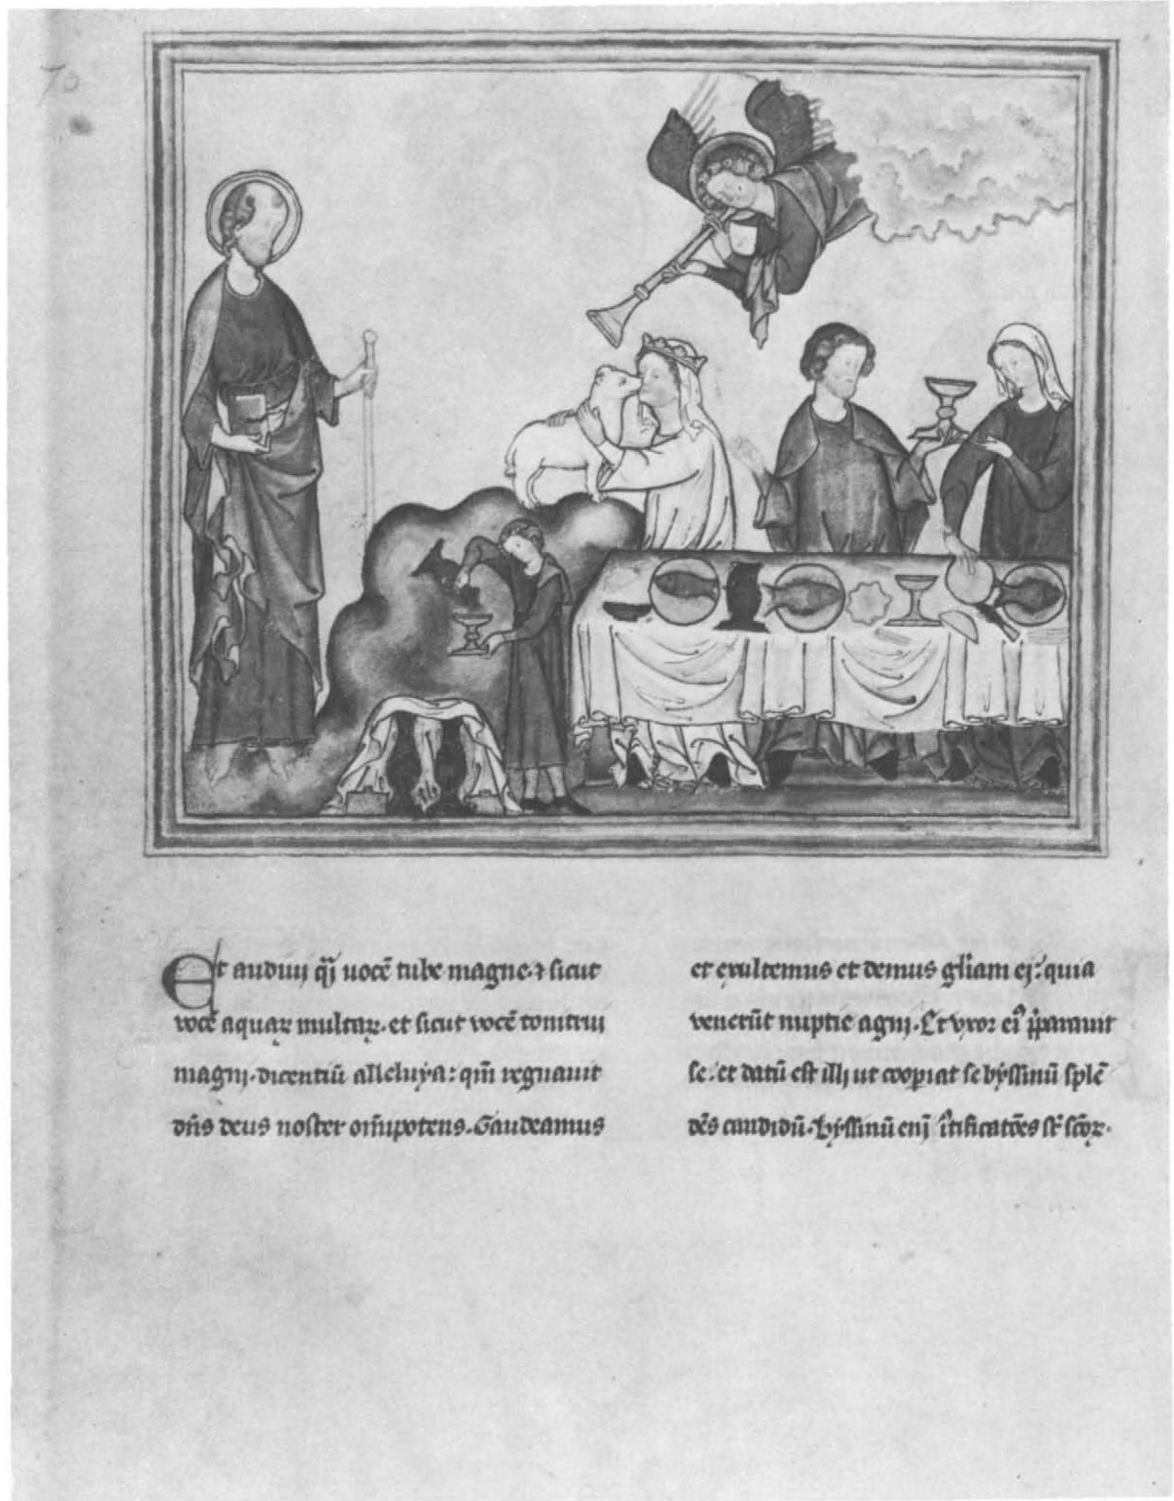 70
Et audiui q̃ȷ uocẽ tube magne · ⁊ sicut
vocẽ aquaꝝ multaꝝ · et sicut vocẽ tonitrui
magnj · dicentiũ alleluẏa : qm̃ regnauit
dñs deus noster om̃ipotens · Gaudeamus
et exultemus et demus gl̃iam ej : quia
venerũt nuptie agnj · Et vxor eiꝰ p̃parauit
se : et datũ est illj ut cooꝑiat se bẏssinũ splẽ
dẽs candidũ · Bẏssinũ enj̃ iꝰtificatões sͭ sc̃oꝝ ·